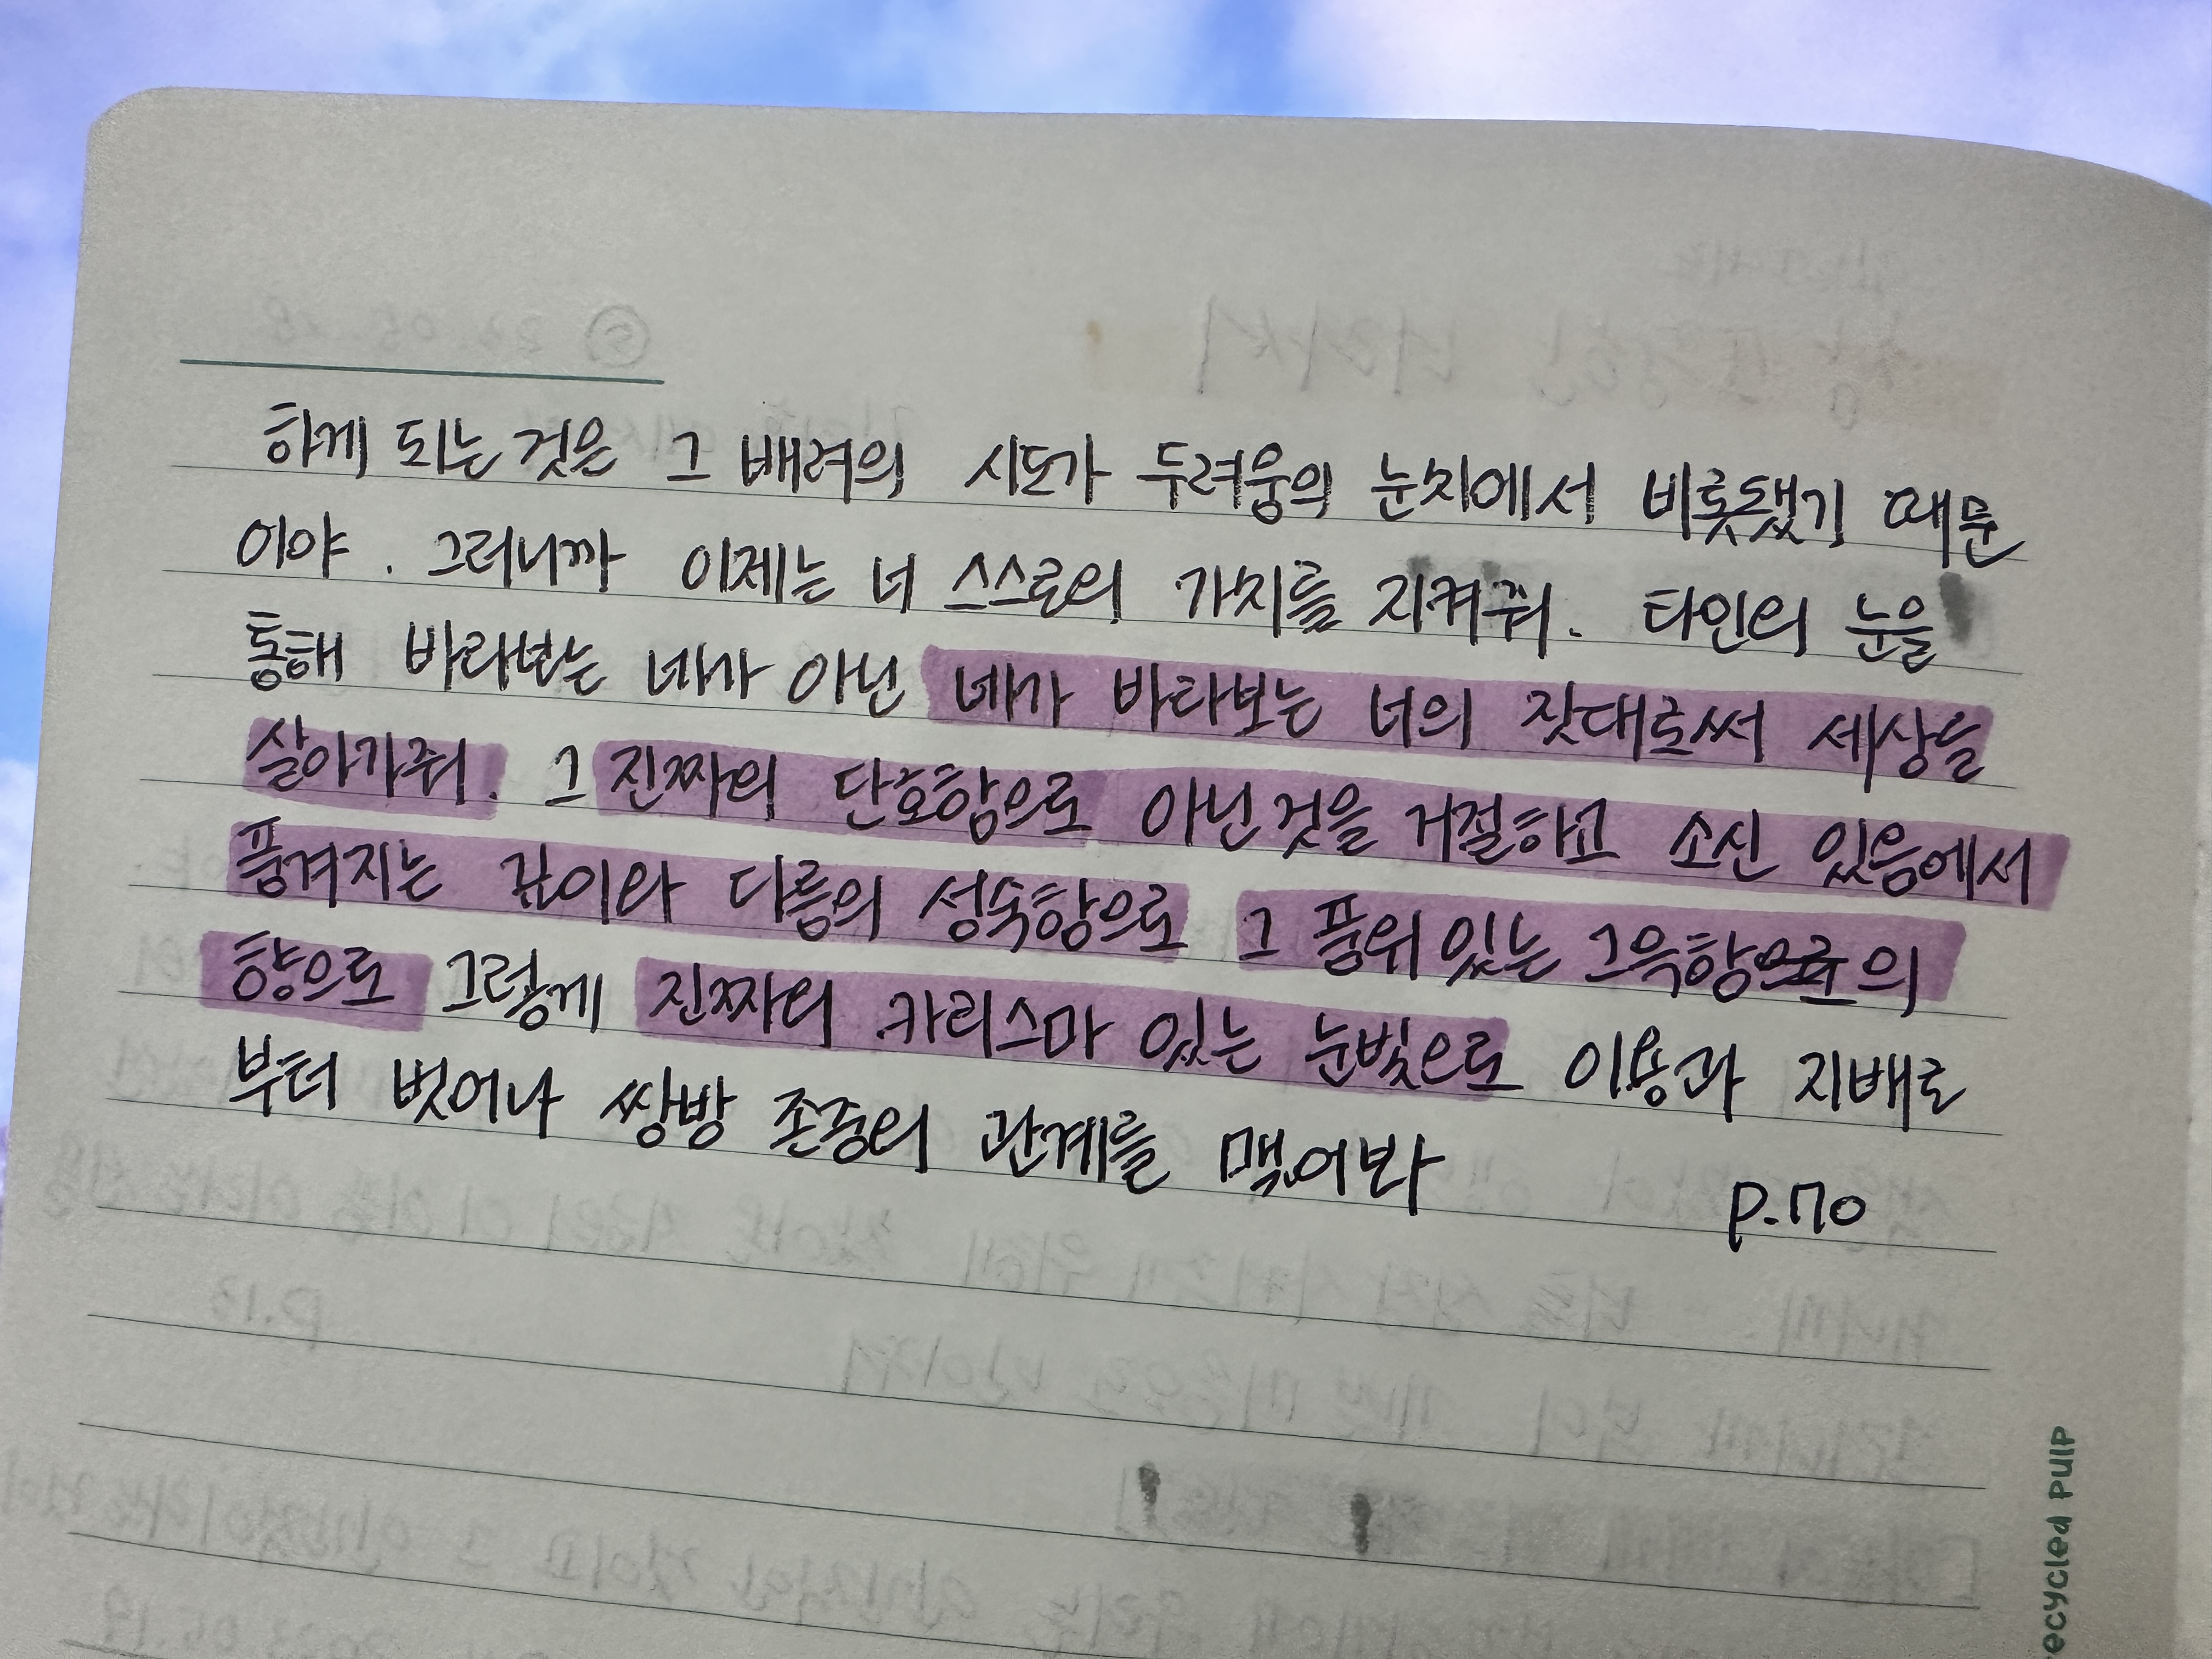 하게 되는 것은 그 배려의 시도가 두려움의 눈치에서 비롯됐기 때문
이야. 그러니까 이제는 너 스스로의 가치를 지켜줘. 타인의 눈을
통해 바라보는 네가 아닌 네가 바라보는 너의 잣대로써 세상을
살아가줘. 그 진짜의 단호함으로 아닌것을 거절하고 소신 있음에서
풍겨지는 깊이와 다름의 성숙함으로 그 품위 있는 그윽함으로의
향으로 그렇게 진짜의 카리스마 있는 눈빛으로 이용과 지배로
부터 벗어나 쌍방 존중의 관계를 맺어봐
p.170
ecycled PULP